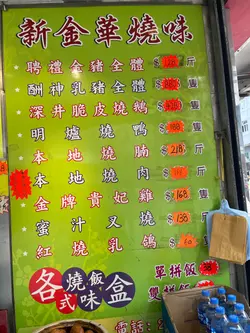 新金華燒味
聘禮金豬全體 $ 斤
酬神乳豬全體 $ 隻
深井脆皮燒鵝 $ 隻
明爐燒鴨 $ 隻
本地燒腩 $218 斤
本地燒肉 $ 斤
金牌貴妃雞 $168 隻
蜜汁叉燒 $138 斤
紅燒乳鴿 $60 隻
各式燒味飯盒
單拼飯
雙拼飯
電話